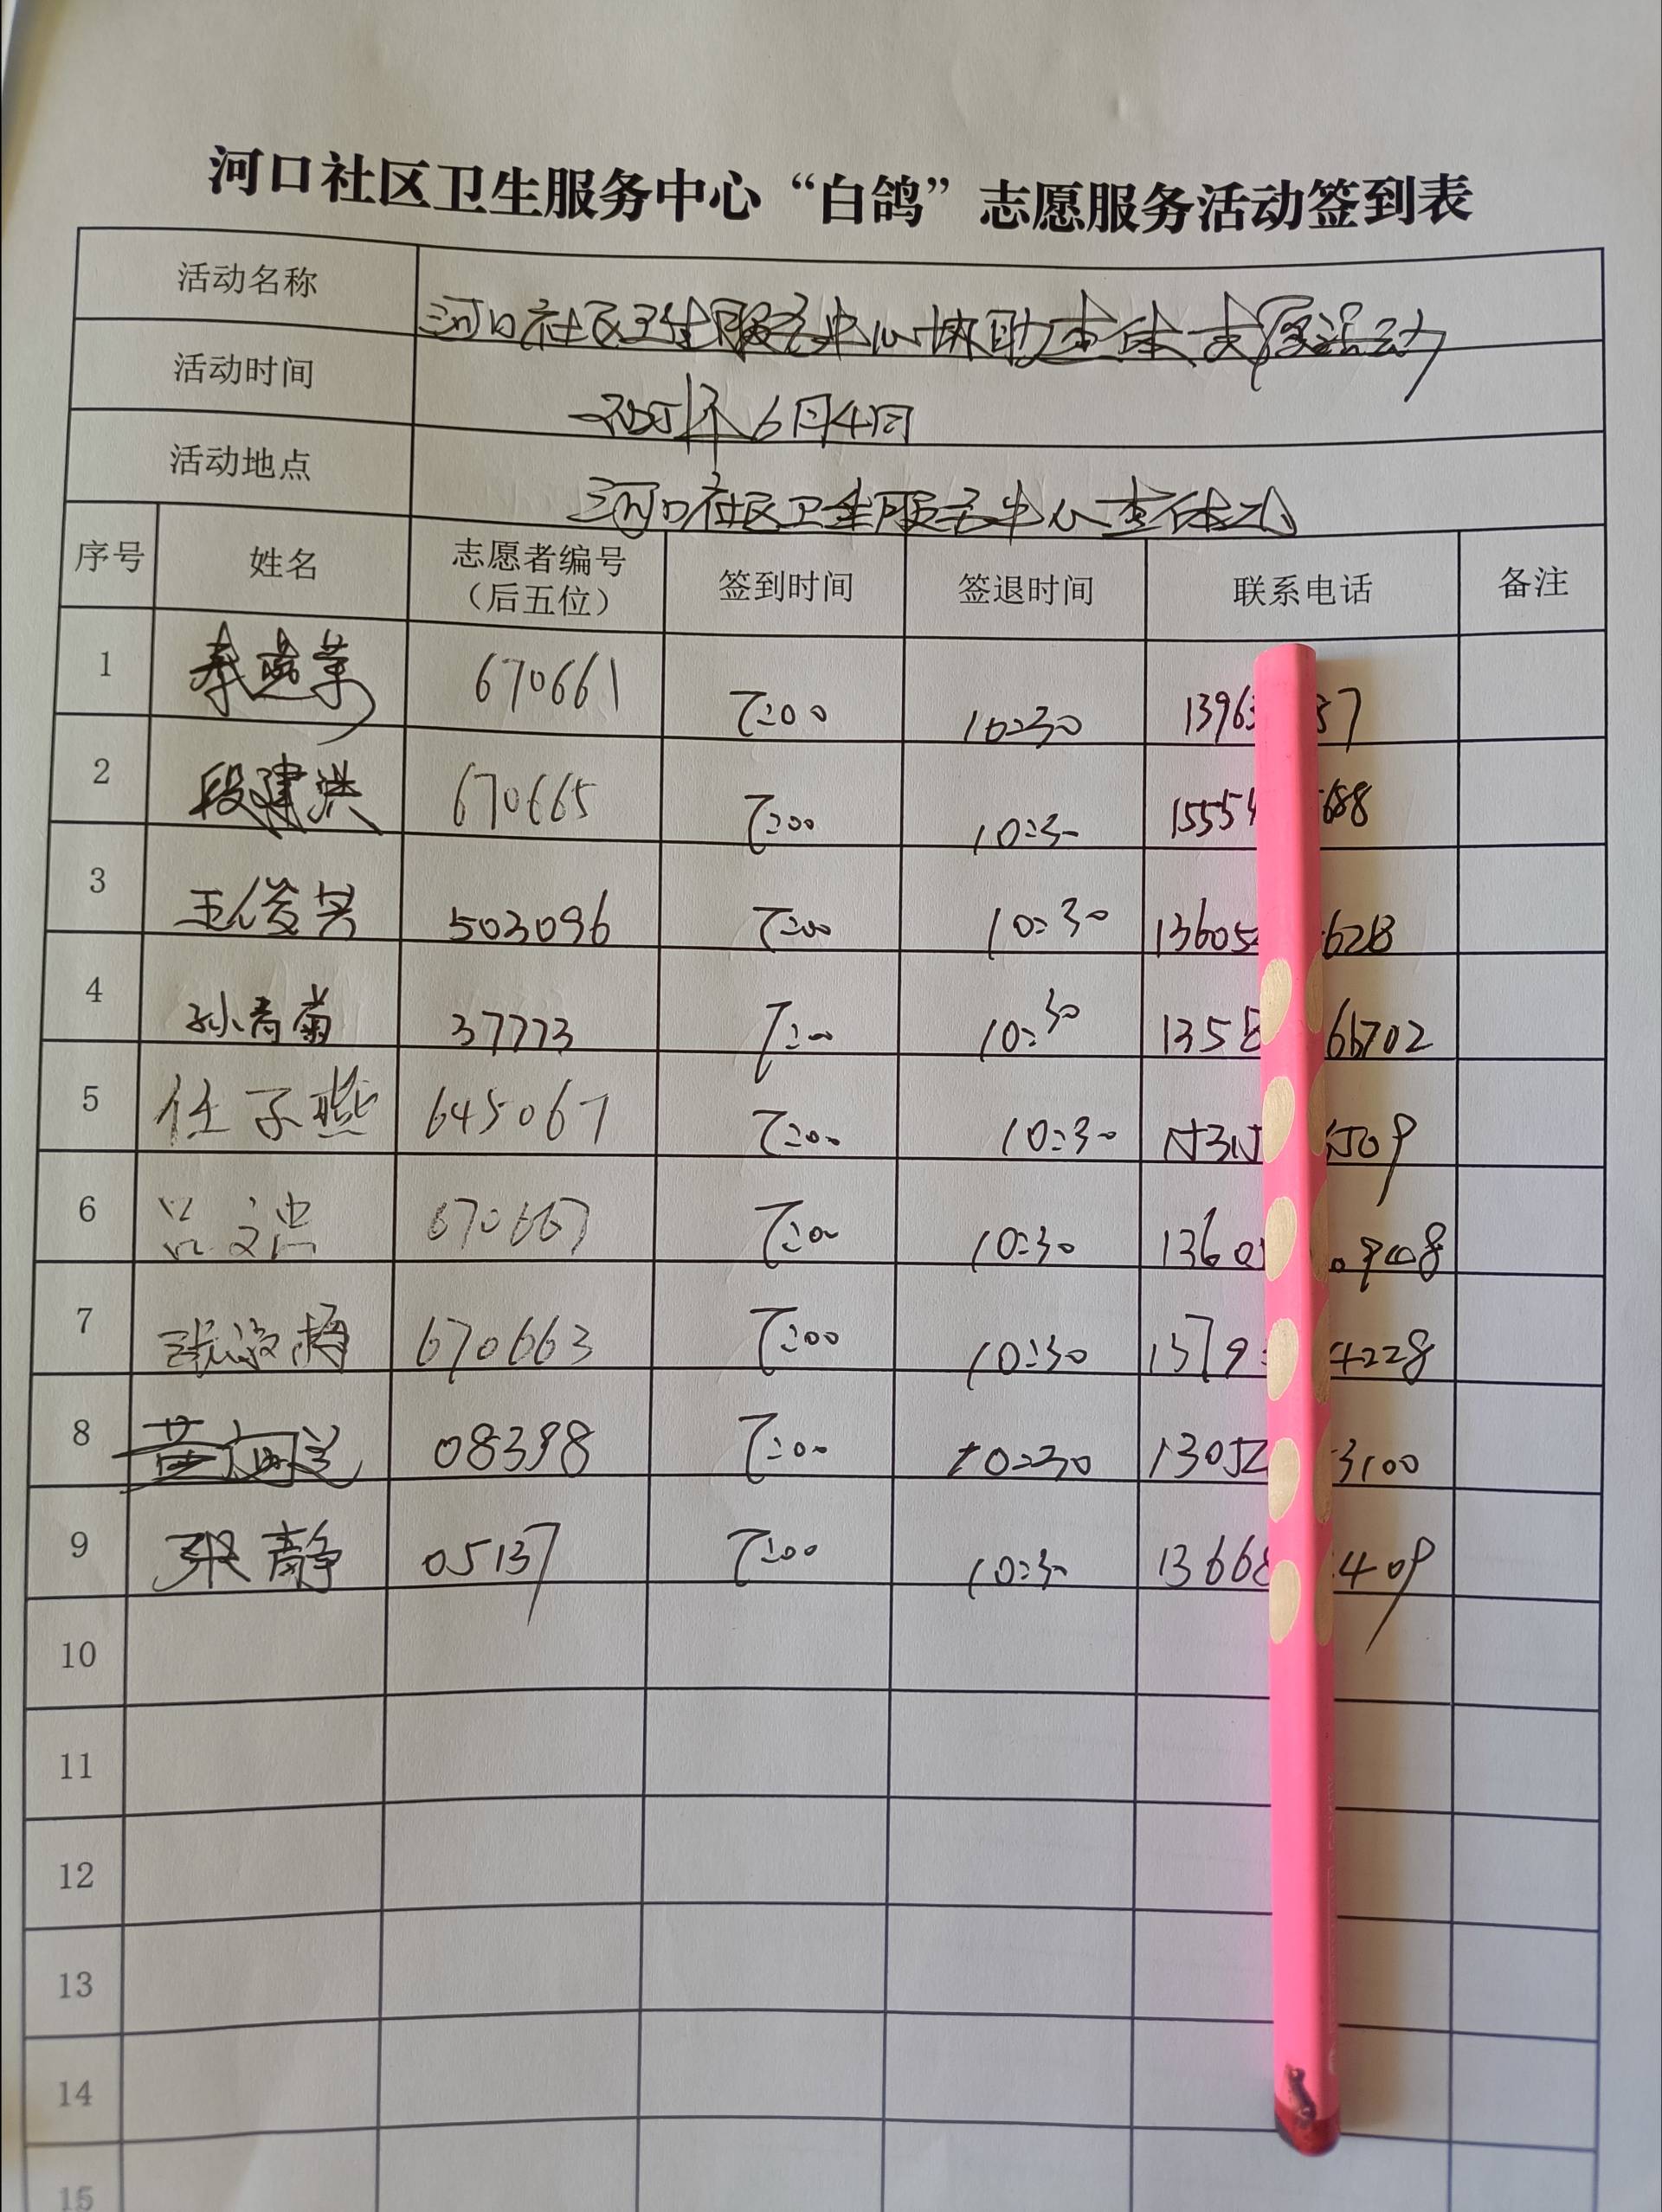 河口社区卫生服务中心“白鸽”志愿服务活动签到表
活动名称 河口社区卫生服务中心协助查体志愿活动
活动时间 6月4日
活动地点 河口社区卫生服务中心查体
序号 姓名 志愿者编号 签到时间 签退时间 联系电话 备注
（后五位）
1 670661 7:00 10:30 1396 57
2 段建洪 670665 7:00 10:30 1555 688
3 王俊芳 503096 7:00 10:30 13605 628
4 孙青菊 37773 7:00 10:30 135 66702
5 任子燕 645067 7:00 10:30 1531 509
6 吕文忠 670667 7:00 10:30 1360 0908
7 670663 7:00 10:30 1379 4228
8 08398 7:00 10:30 13052 3100
9 张静 05137 7:00 10:30 13668 409
10
11
12
13
14
15